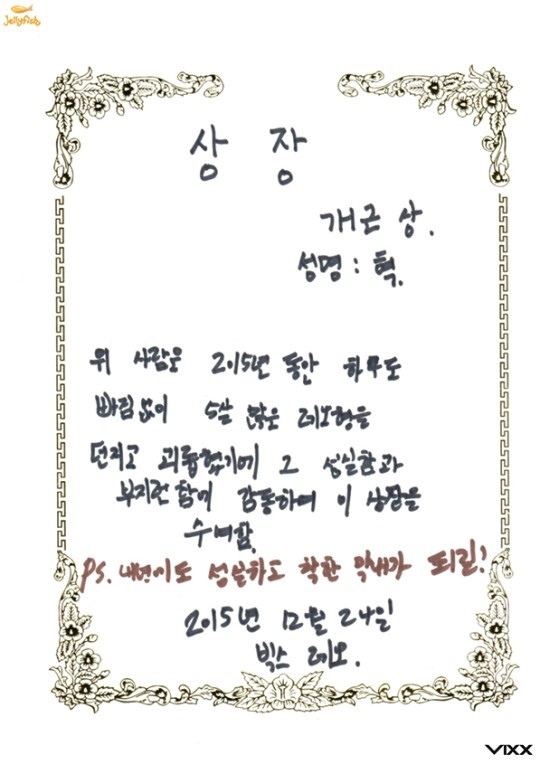 Jellyfish
상 장
개근 상.
성명 : 혁.
위 사람은 2015년 동안 하루도
빠짐 없이 5살 많은 레오형을
던지고 괴롭혔기에 그 성실함과
부지런함에 감동하여 이 상장을
수여함.
PS. 내년에도 성실하고 착한 막내가 되길!
2015년 12월 24일
빅스 레오.
VIXX